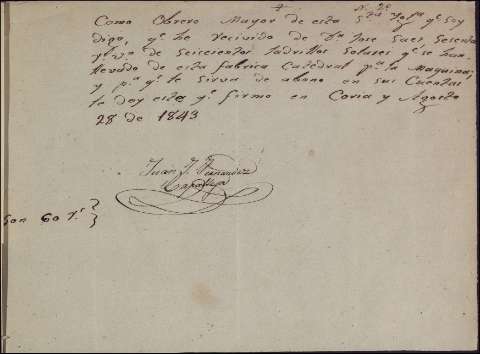 N. 2º
Como Obrero Mayor de esta Sta Yglª qe soy
digo, qe he recivido de Dn Jose Saez Sesenta
rs vn de Seicientos ladrillos Solares qe se han
llevado de esta fabrica Catedral pª la Maquina;
y pª qe le sirva de abono en sus Cuentas
le doy este qe firmo en Coria y Agosto
28 de 1843
Juan J. Fernandez
Son 60 rs